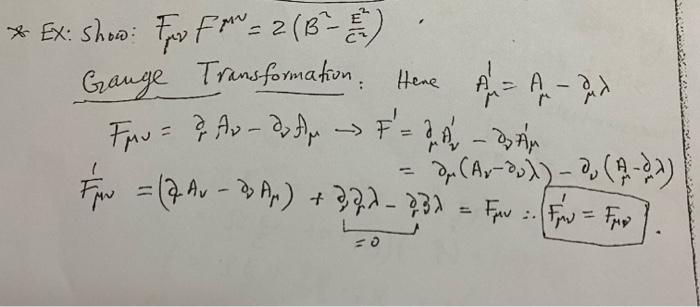 * Ex: Show: F_μν F^μν = 2 (B² - E²/C²)
Gauge Transformation: Here A'_μ = A_μ - ∂_μ λ
F_μν = ∂_μ A_ν - ∂_ν A_μ → F' = ∂_μ A'_ν - ∂_ν A'_μ
= ∂_μ (A_ν - ∂_ν λ) - ∂_ν (A_μ - ∂_μ λ)
F'_μν = (∂_μ A_ν - ∂_ν A_μ) + ∂_ν ∂_μ λ - ∂_μ ∂_ν λ = F_μν ∴ F'_μν = F_μν .
= 0